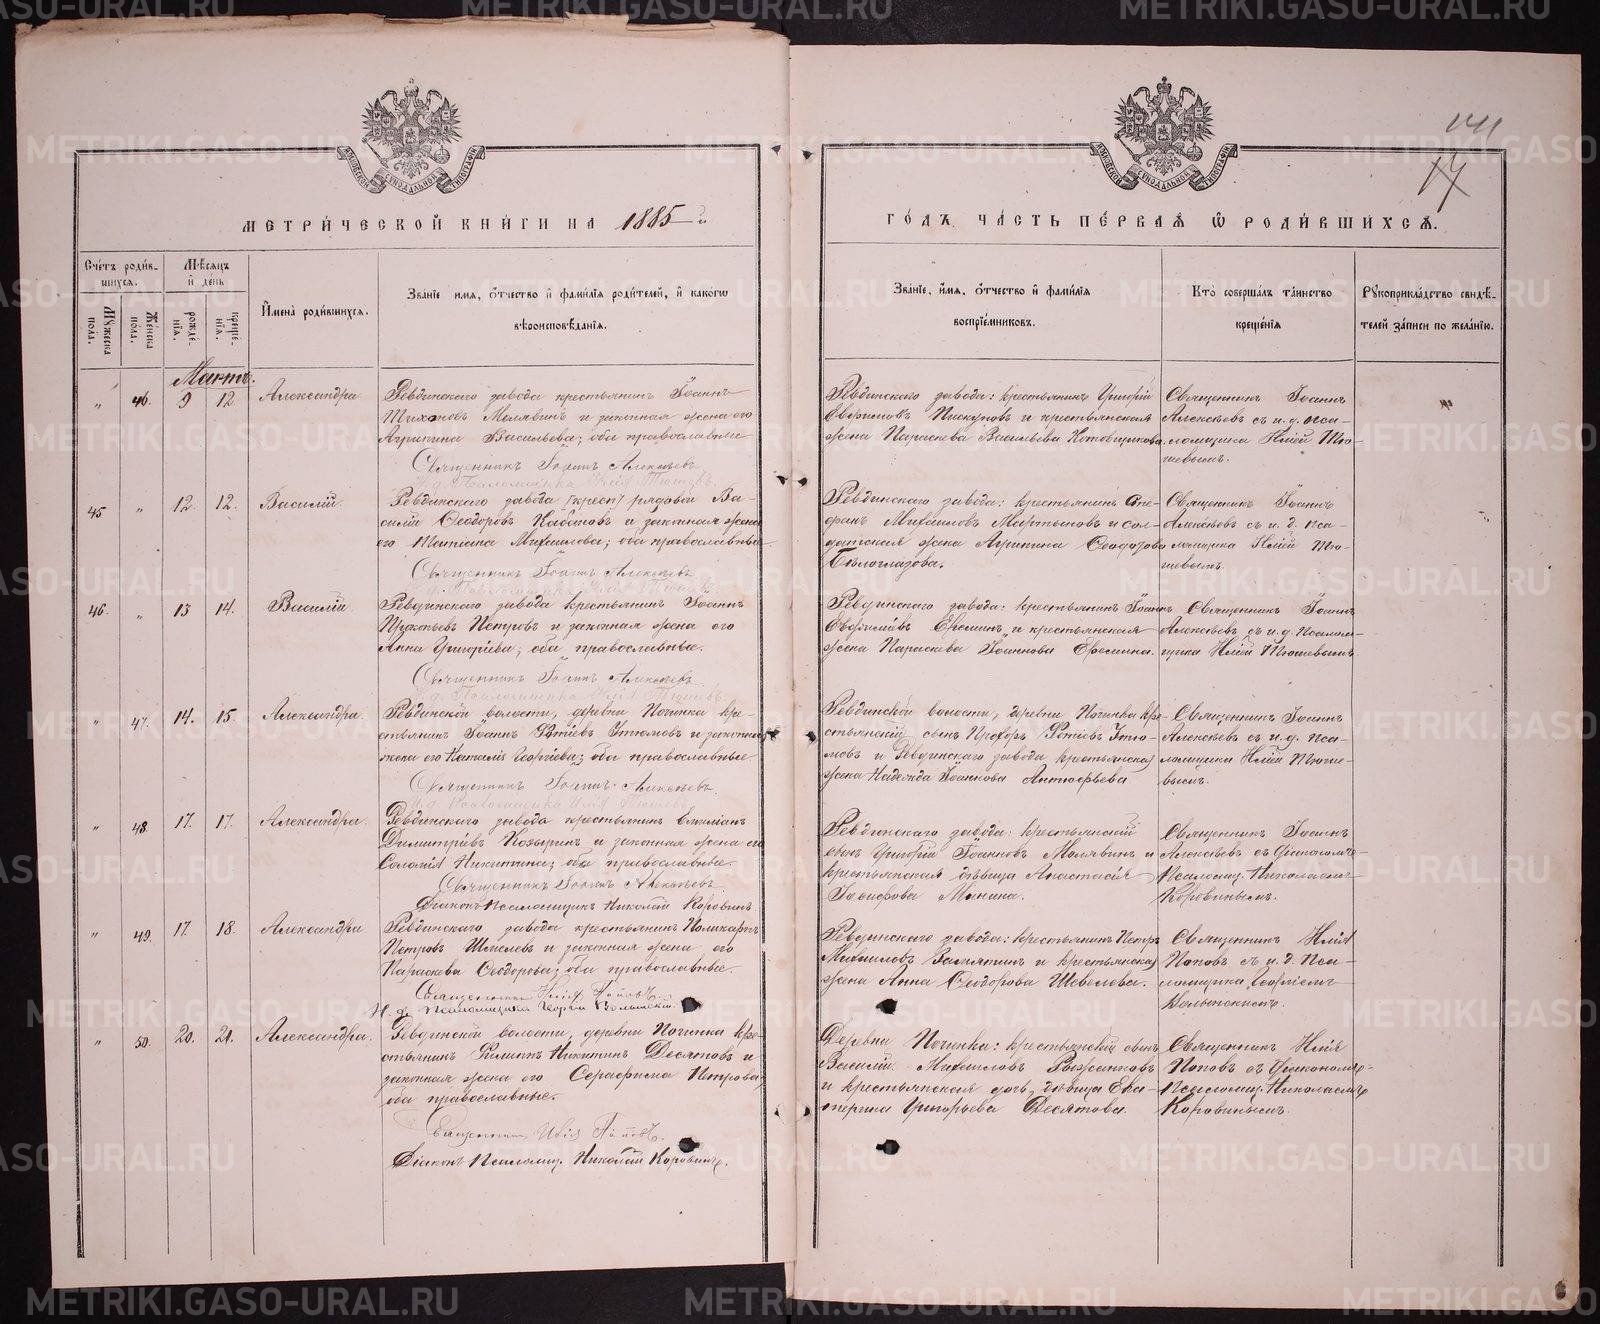 МЕТРИ́ЧЕСКОЙ КНИ́ГИ НА 1885 й
Сче́тъ роди́в-
шихся.
Мѣ́сяцъ
и҆ де́нь
Му́жеска
пола.
Же́нска
пола.
рожде́-
нїя.
креще́-
нїя.
И҆мена̀ роди́вшихся.
Зва́нїе имя, ѻ҆́тчество и҆ фами́лїя роди́телей, и҆ како́гѡ
вѣроисповѣ́данїя.
Мартъ.
"
46.
9
12
Александра
Ревдинскаго завода крестьянинъ Іоаннъ
Тихоновъ Малявинъ и законная жена его
Агрипина Васильева; оба православные
Священникъ Іоаннъ Алексѣевъ
45
"
12.
12.
Василій.
Ревдинскаго завода (крест) рядовой Ва-
силій Ѳеодоровъ Кабановъ и законная жена
его Татіана Михайлова; оба православные
Священникъ Іоаннъ Алексѣевъ
46.
"
13
14.
Василій
Ревдинскаго завода крестьянинъ Іоаннъ
Прокопьевъ Петровъ и законная жена его
Анна Григоріева; оба православные.
Священникъ Іоаннъ Алексѣевъ
"
47.
14.
15.
Александра.
Ревдинской волости, деревни Починка кре-
стьянинъ Іоаннъ Фотіевъ Утюмовъ и законная
жена его Наталія Георгіева; оба православные
Священникъ Іоаннъ Алексѣевъ.
"
48.
17.
17.
Александра.
Ревдинскаго завода крестьянинъ Емиліанъ
Димитріевъ Козыринъ и законная жена его
Соломія Никитина; оба православные.
Священникъ Іоаннъ Алексѣевъ.
Діаконъ Псаломщикъ Николай Коровинъ
"
49.
17.
18.
Александра
Ревдинскаго завода крестьянинъ Поликарпъ
Петровъ Шмелевъ и законная жена его
Параскева Ѳеодорова; оба православные.
Священникъ Илія Поповъ.
И. д. псаломщика Георгій Волынскій.
"
50.
20.
21.
Александра.
Ревдинской волости, деревни Починка кре-
стьянинъ Филиппъ Никитинъ Десятовъ и
законная жена его Серафима Петрова;
оба православные.
Священникъ Илія Поповъ.
Діаконъ Псаломщ. Николай Коровинъ.
141
17
ГО́ДЪ ЧА́СТЬ ПЕ́РВАЯ Ѡ РОДИ́ВШИХСЯ.
Зва́нїе, и҆мя, ѻ҆́тчество и҆ фами́лїя
воспрїе́мниковъ.
Кто̀ соверша́лъ та́инство
креще́нїя
Рꙋкоприкла́дство свидѣ́-
телей за́писи по жела́нїю.
Ревдинскаго завода: крестьянинъ Григорій
Евфимовъ Пискуновъ и крестьянская
жена Параскева Васильева Котовщикова.
Священникъ Іоаннъ
Алексѣевъ съ и. д. пса-
ломщика Иліей Тю-
шевымъ.
Ревдинскаго завода: крестьянинъ Сте-
фанъ Михайловъ Мартыновъ и сол-
датская жена Агрипина Ѳеодотова
Бѣлоглазова.
Священникъ Іоаннъ
Алексѣевъ съ и. д. пса-
ломщика Иліей Тю-
шевымъ.
Ревдинскаго завода: крестьянинъ Іоаннъ
Евфиміевъ Еремин и крестьянская
жена Параскева Іоаннова Еремина.
Священникъ Іоаннъ
Алексѣевъ съ и. д. псалом-
щика Иліей Тюшевымъ
Ревдинской волости, деревни Починка кре-
стьянскій сынъ Прохоръ Фотіевъ Утю-
мовъ и Ревдинскаго завода крестьянская
жена Надежда Іоаннова Антюфьева
Священникъ Іоаннъ
Алексѣевъ съ и. д. пса-
ломщика Иліей Тюше-
вымъ.
Ревдинскаго завода: крестьянскій
сынъ Григорій Іоанновъ Малявинъ и
крестьянская дѣвица Анастасія
Іосифова Минина.
Священникъ Іоаннъ
Алексѣевъ съ Діакономъ
Псаломщ. Николаемъ
Коровинымъ.
Ревдинскаго завода: крестьянинъ Петръ
Михайловъ Замятинъ и крестьянская
жена Анна Ѳеодорова Шевелева.
Священникъ Илія
Поповъ съ и. д. пса-
ломщика Георгіемъ
Волынскимъ.
Деревни Починка: крестьянскій сынъ
Василій Михайловъ
и крестьянская дочь, дѣвица Ека-
терина Григорьева Десятова.
Священникъ Илія
Поповъ съ Діакономъ
Псаломщ. Николаемъ
Коровинымъ.
METRIKI.GASO-URAL.RU